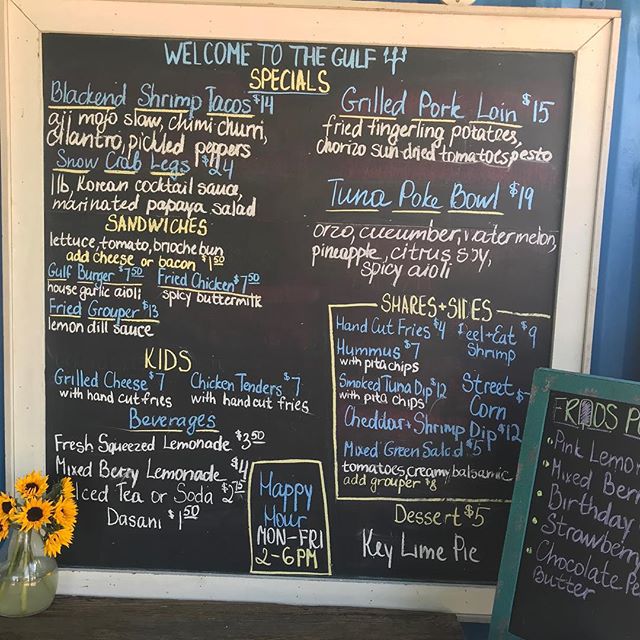 WELCOME TO THE GULF
SPECIALS
Blackend Shrimp Tacos $14
aji mojo slaw, chimi churri,
cilantro, pickled peppers
Snow Crab Legs $24
1lb, Korean cocktail sauce,
marinated papaya salad
SANDWICHES
lettuce, tomato, brioche bun
add cheese or bacon $1.50
Gulf Burger $7.50
house garlic aioli
Fried Chicken $7.50
spicy buttermilk
Fried Grouper $13
lemon dill sauce
KIDS
Grilled Cheese $7
with hand cut fries
Chicken Tenders $7
with hand cut fries
Beverages
Fresh Squeezed Lemonade $3.50
Mixed Berry Lemonade $4
Iced Tea or Soda $2.75
Dasani $1.50
Happy
Hour
MON-FRI
2-6PM
Grilled Pork Loin $15
fried fingerling potatoes,
chorizo sun dried tomatoes pesto
Tuna Poke Bowl $19
orzo, cucumber, watermelon,
pineapple, citrus soy,
spicy aioli
SHARES + SIDES
Hand Cut Fries $4
Peel + Eat $9
Shrimp
Hummus $7
with pita chips
Smoked Tuna Dip $12
with pita chips
Street $7
Corn
Cheddar + Shrimp Dip $12
Mixed Green Salad $5
tomatoes, creamy balsamic
add grouper $8
Dessert $5
Key Lime Pie
Pink Lemon
Mixed Berr
Birthday
Strawberry
Chocolate Pe
Butter